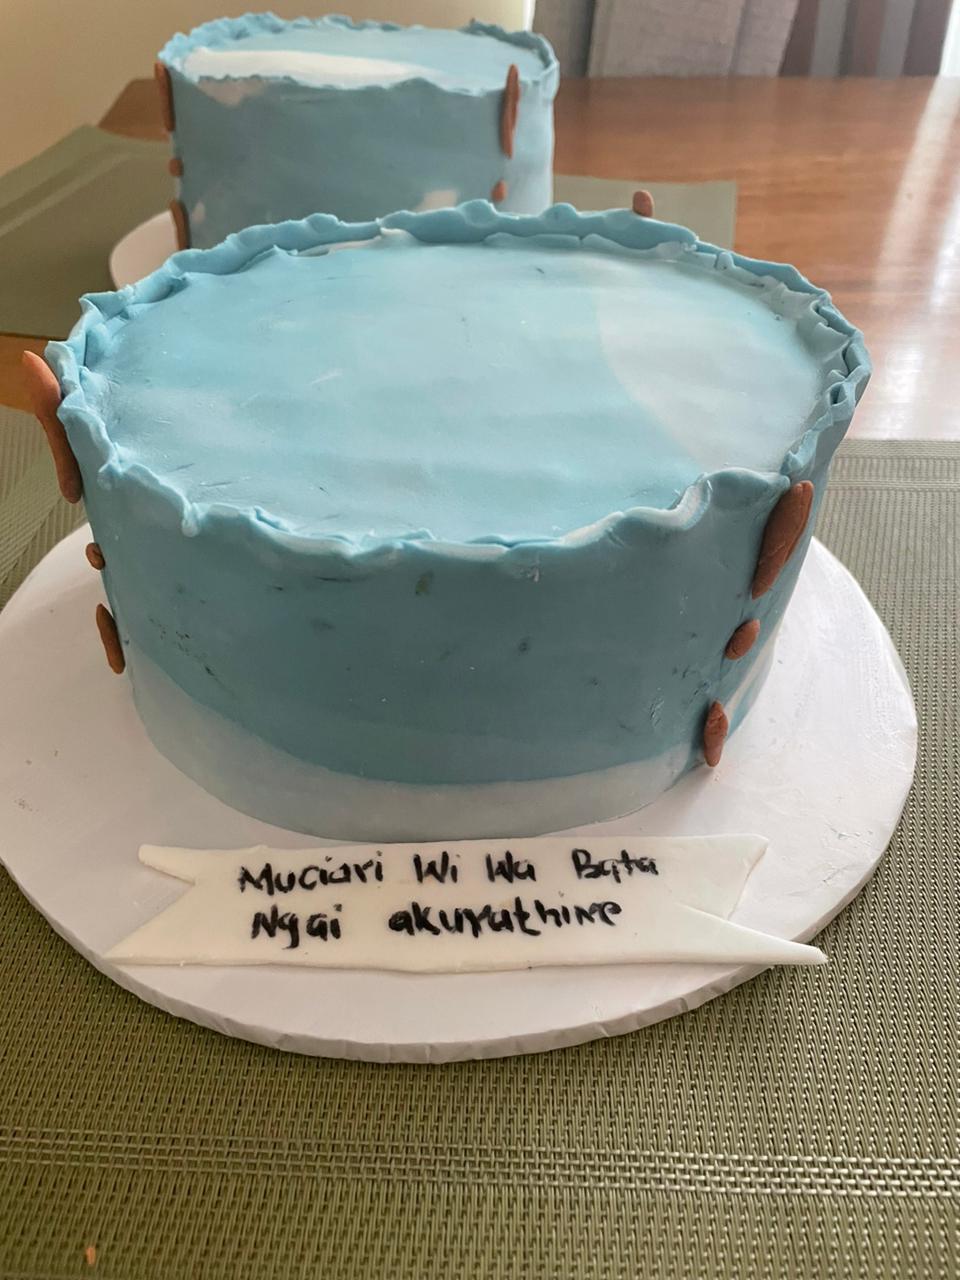 Muciari Wi Wa Bata
Ngai akurathime